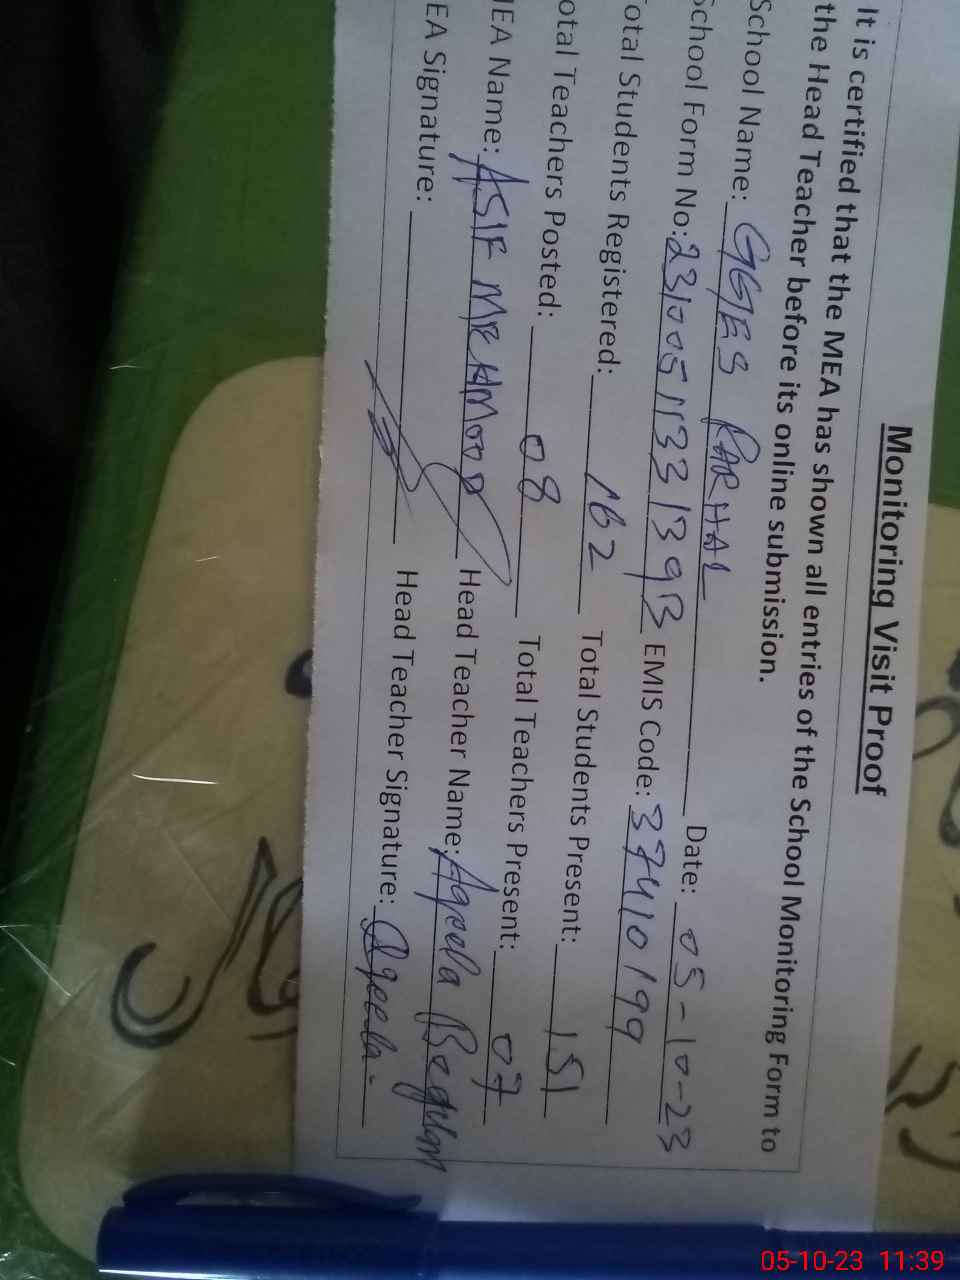 Monitoring Visit Proof
It is certified that the MEA has shown all entries of the School Monitoring Form to
the Head Teacher before its online submission.
School Name: GGES PARHAL Date: 05-10-23
School Form No: 23100511331393 EMIS Code: 37410199
otal Students Registered: 162 Total Students Present: 151
otal Teachers Posted: 08 Total Teachers Present: 07
EA Name: ASIF MEHMOOD Head Teacher Name: Aqeela Begum
EA Signature: Head Teacher Signature: Aqeela
05-10-23 11:39